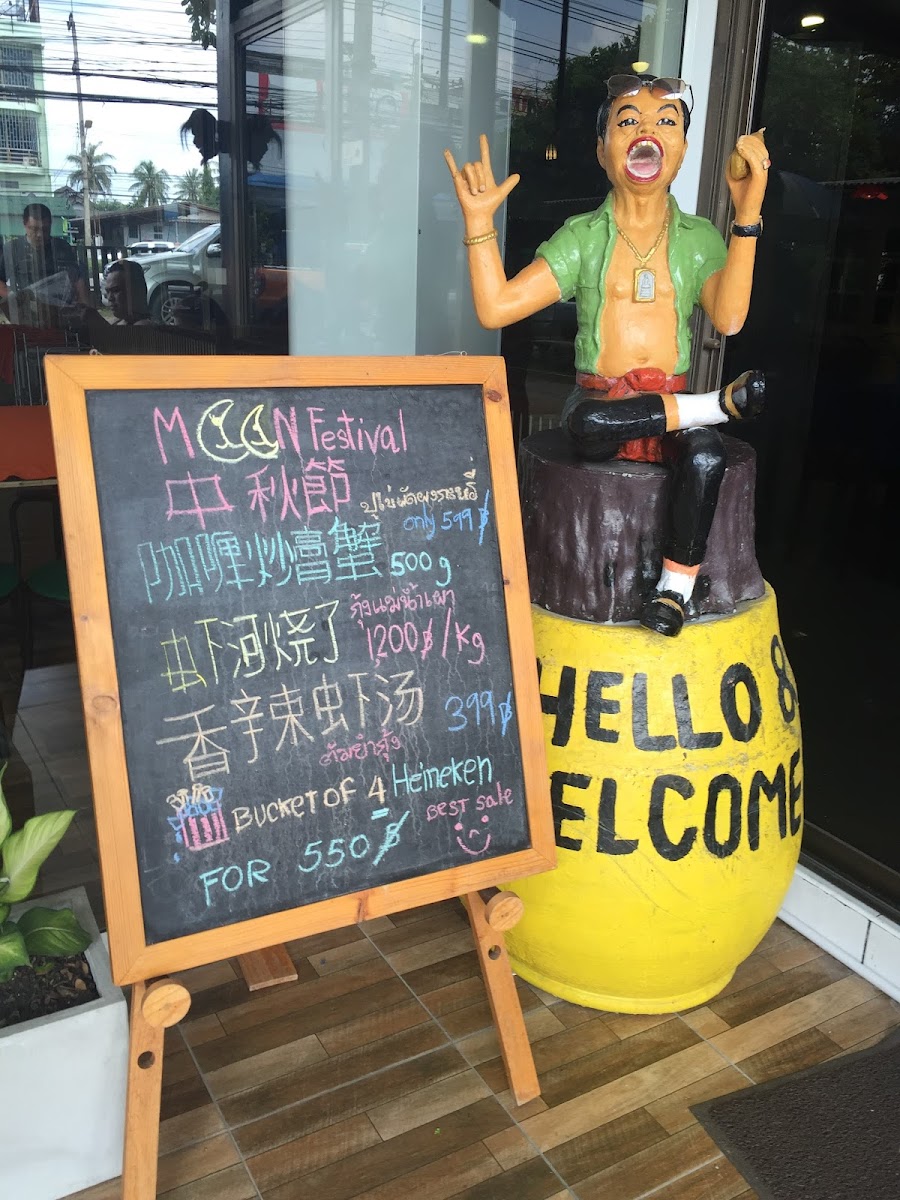 MOON Festival
中秋節
ปูไข่ผัดผงกะหรี่
only 599฿
咖喱炒膏蟹 500g
กุ้งแม่น้ำเผา
虾河烧了 1,200฿/Kg
香辣虾汤 399฿
ต้มยำกุ้ง
BUCKET OF 4 Heineken
BEST Sale
FOR 550฿
HELLO &
WELCOME